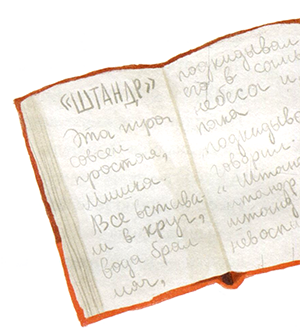 «ШТАНДР»
Эта игра
совсем
простая,
Мишка.
Все встава-
ли в круг,
вода брал
мяч,
подкидывал
его в самые
небеса и
пока
подкидывал
говорил:
"Штандр-
штандр,